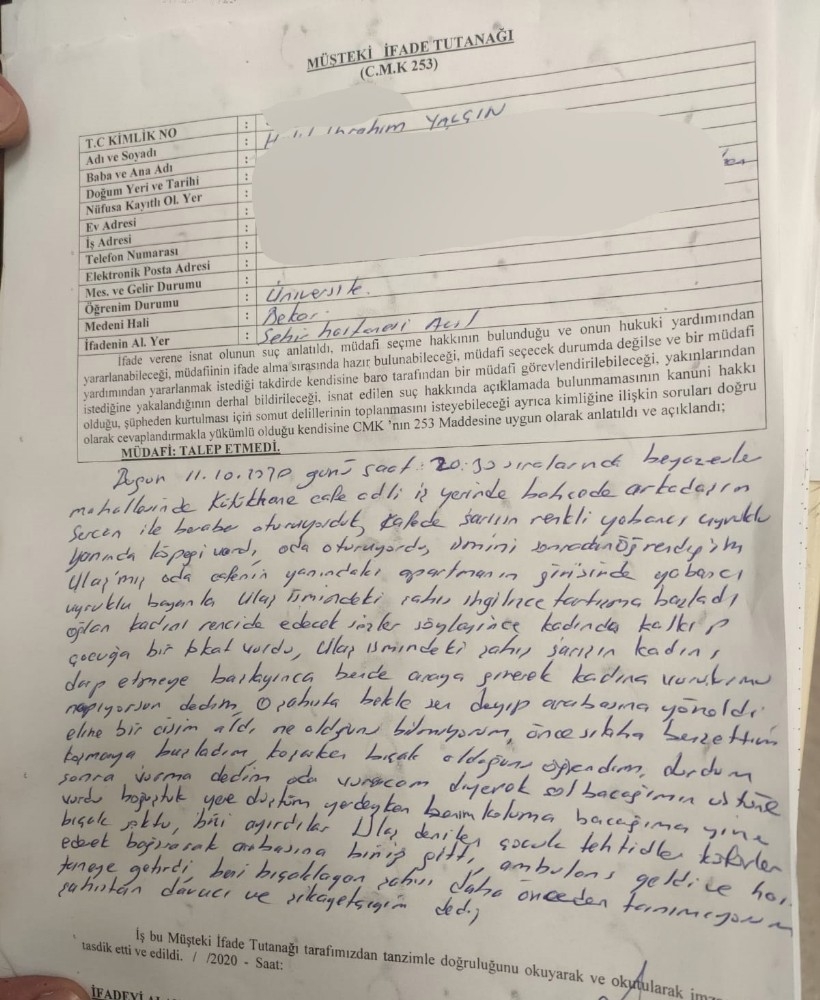 MÜŞTEKİ İFADE TUTANAĞI
(C.M.K 253)
T.C KİMLİK NO :
Adı ve Soyadı : İbrahim YALÇIN
Baba ve Ana Adı :
Doğum Yeri ve Tarihi :
Nüfusa Kayıtlı Ol. Yer :
Ev Adresi :
İş Adresi :
Telefon Numarası :
Elektronik Posta Adresi :
Mes. ve Gelir Durumu :
Öğrenim Durumu : Üniversite.
Medeni Hali : Bekar.
İfadenin Al. Yer : Şehir hastanesi Acil
İfade verene isnat olunun suç anlatıldı, müdafi seçme hakkının bulunduğu ve onun hukuki yardımından
yararlanabileceği, müdafiinin ifade alma sırasında hazır bulunabileceği, müdafi seçecek durumda değilse ve bir müdafi
yardımından yararlanmak istediği takdirde kendisine baro tarafından bir müdafi görevlendirilebileceği, yakınlarından
istediğine yakalandığının derhal bildirileceği, isnat edilen suç hakkında açıklamada bulunmamasının kanuni hakkı
olduğu, şüpheden kurtulması için somut delillerinin toplanmasını isteyebileceği ayrıca kimliğine ilişkin soruları doğru
olarak cevaplandırmakla yükümlü olduğu kendisine CMK 'nın 253 Maddesine uygun olarak anlatıldı ve açıklandı;
MÜDAFİ: TALEP ETMEDİ.
Bugün 11.10.2020 günü saat: 20:30 sıralarında beyazevle
mahallesinde Kütükhane cafe adlı iş yerinde bahçede arkadaşım
Sercan ile beraber oturuyorduk, kafede sarışın renkli yabancı uyruklu
yanında köpeği vardı, oda oturuyordu, ismini sonradan öğrendiğim
Ulaş'mış oda cafenin yanındaki apartmanın girişinde yabancı
uyruklu bayanla Ulaş ismindeki şahıs ingilizce tartışma başladı
oğlan kadını rencide edecek sözler söyleyince kadında kalkıp
çocuğa bir tokat vurdu, Ulaş ismindeki şahıs sarışın kadını
darp etmeye başlayınca bende araya girerek kadına vurulurmu
napıyorsun dedim, O şahısta bekle sen deyip arabasına yöneldi
eline bir cisim aldı, ne olduğunu bilmiyorum, önce silaha benzettim
koşmaya başladım koşarken bıçak olduğunu öğrendim, durdum
sonra vurma dedim oda vuracam diyerek sol bacağımın üstüne
vurdu boğuştuk yere düştüm yerdeyken benim koluma bacağıma yine
bıçak soktu, bizi ayırdılar Ulaş denilen çocuk tehtidler küfürler
ederek bağırarak arabasına binip gitti, ambulans geldi ve has
taneye getirdi, beni bıçaklayan şahsı daha önceden tanımıyorum
şahıstan davacı ve şikayetçiyim dedi;
İş bu Müşteki İfade Tutanağı tarafımızdan tanzimle doğruluğunu okuyarak ve okutularak imza
tasdik etti ve edildi. / /2020 - Saat: